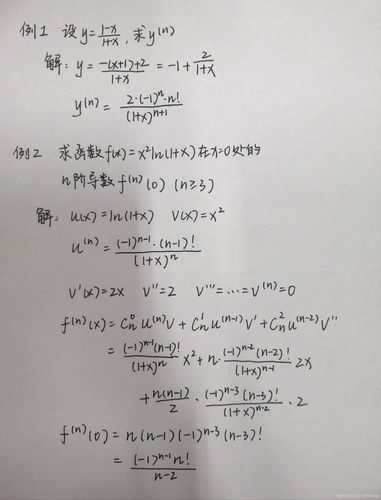 例1 设 y=\frac{1-x}{1+x}, 求 y^{(n)}
解: y=\frac{-(x+1)+2}{1+x}=-1+\frac{2}{1+x}
y^{(n)}=\frac{2·(-1)^n·n!}{(1+x)^{n+1}}
例2 求函数 f(x)=x^2ln(1+x) 在 x=0 处的
n阶导数 f^{(n)}(0) (n≥3)
解: u(x)=ln(1+x) v(x)=x^2
u^{(n)}=\frac{(-1)^{n-1}·(n-1)!}{(1+x)^n}
v'(x)=2x v''=2 v'''=⋯=v^{(n)}=0
f^{(n)}(x)=C_n^0u^{(n)}v+C_n^1u^{(n-1)}v'+C_n^2u^{(n-2)}v''
=\frac{(-1)^{n-1}(n-1)!}{(1+x)^n}x^2+n·\frac{(-1)^{n-2}(n-2)!}{(1+x)^{n-1}}2x
+\frac{n(n-1)}{2}·\frac{(-1)^{n-3}(n-3)!}{(1+x)^{n-2}}·2
f^{(n)}(0)=n(n-1)(-1)^{n-3}(n-3)!
=\frac{(-1)^{n-1}n!}{n-2}